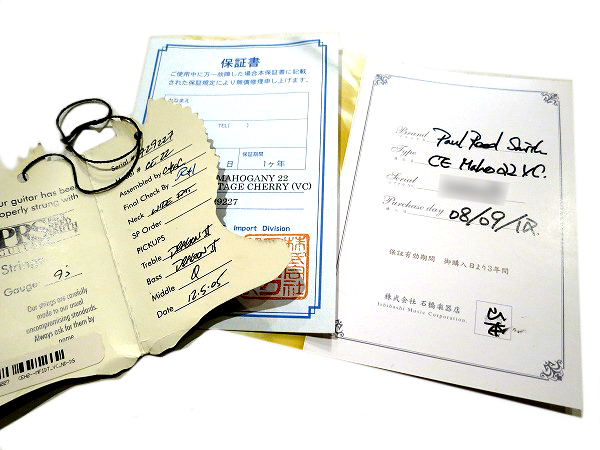 ur guitar has been
operly strung with
PRS
Strings
Gauge 9.5
Our strings are carefully
made to our usual
uncompromising standards.
Always ask for them by
name
Serial #
CE 22
Assembled by
Final Check By
Neck WIDE FAT
SP Order
PICKUPS
Treble DRAGON II
Bass DRAGON II
Middle
Date 12.5.05
保証書
ご使用中に万一故障した場合本保証書に記載
された保証規定により無償修理申し上げます。
おなまえ
TEL( )
保証期間
日 1ヶ年
MAHOGANY 22
TAGE CHERRY (VC)
09227
Import Division
株式会社
Brand Paul Reed Smith
Type CE Maho 22 VC.
Serial
Purchase day 08/09/12
保証有効期間 御購入日より3年間
株式会社 石橋楽器店
Ishibashi Music Corporation.